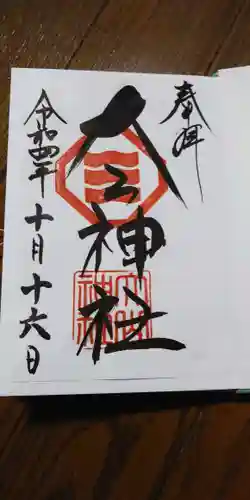 奉拝
大山神社
令和四年十月十六日